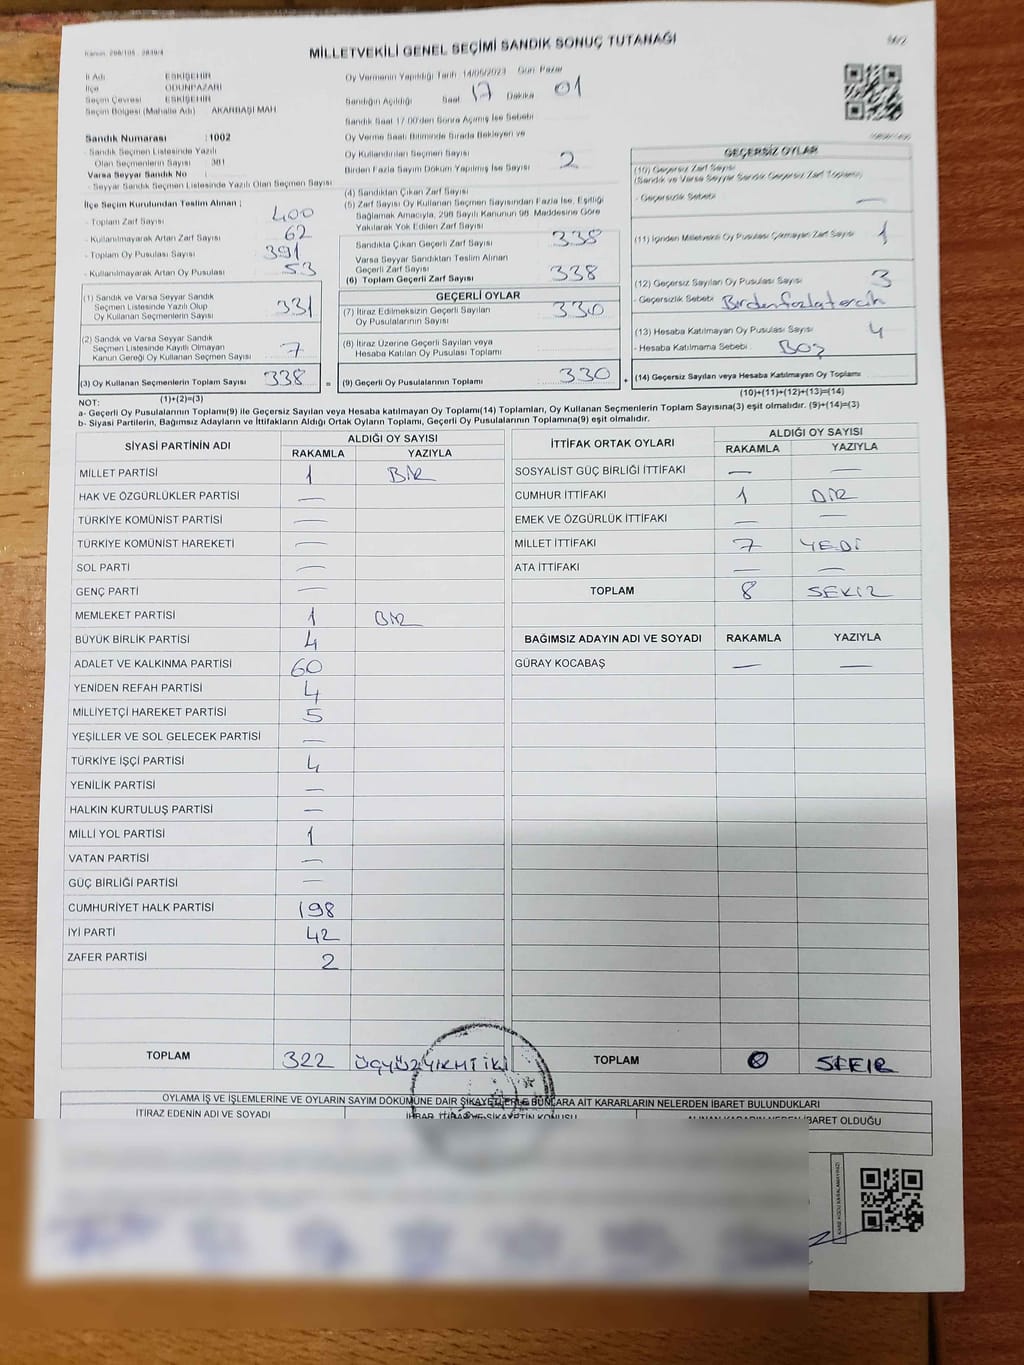 Kanun: 298/105 - 2839/4
MİLLETVEKİLİ GENEL SEÇİMİ SANDIK SONUÇ TUTANAĞI
İl Adı ESKİŞEHİR
İlçe ODUNPAZARI
Seçim Çevresi ESKİŞEHİR
Seçim Bölgesi (Mahalle Adı) AKARBAŞI MAH.
Oy Vermenin Yapıldığı Tarih : 14/05/2023 Gün: Pazar
Sandığın Açıldığı Saat 17 Dakika 01
Sandık Saat 17:00'den Sonra Açılmış İse Sebebi
Sandık Numarası : 1002
- Sandık Seçmen Listesinde Yazılı
Olan Seçmenlerin Sayısı : 381
Varsa Seyyar Sandık No :
- Seyyar Sandık Seçmen Listesinde Yazılı Olan Seçmen Sayısı
Oy Verme Saati Bitiminde Sırada Bekleyen ve
Oy Kullandırılan Seçmen Sayısı
Birden Fazla Sayım Döküm Yapılmış İse Sayısı 2
İlçe Seçim Kurulundan Teslim Alınan ;
- Toplam Zarf Sayısı 400
- Kullanılmayarak Artan Zarf Sayısı 62
- Toplam Oy Pusulası Sayısı 391
- Kullanılmayarak Artan Oy Pusulası 53
(1) Sandık ve Varsa Seyyar Sandık
Seçmen Listesinde Yazılı Olup
Oy Kullanan Seçmenlerin Sayısı 331
(2) Sandık ve Varsa Seyyar Sandık
Seçmen Listesinde Kayıtlı Olmayan
Kanun Gereği Oy Kullanan Seçmen Sayısı 7
(3) Oy Kullanan Seçmenlerin Toplam Sayısı 338
(1)+(2)=(3)
(4) Sandıktan Çıkan Zarf Sayısı
(5) Zarf Sayısı Oy Kullanan Seçmen Sayısından Fazla İse, Eşitliği
Sağlamak Amacıyla, 298 Sayılı Kanunun 98. Maddesine Göre
Yakılarak Yok Edilen Zarf Sayısı
Sandıkta Çıkan Geçerli Zarf Sayısı 338
Varsa Seyyar Sandıktan Teslim Alınan
Geçerli Zarf Sayısı
(6) Toplam Geçerli Zarf Sayısı 338
GEÇERLİ OYLAR
(7) İtiraz Edilmeksizin Geçerli Sayılan
Oy Pusulalarının Sayısı 330
(8) İtiraz Üzerine Geçerli Sayılan veya
Hesaba Katılan Oy Pusulası Toplamı
(9) Geçerli Oy Pusulalarının Toplamı 330
GEÇERSİZ OYLAR
(10) Geçersiz Zarf Sayısı
(Sandık ve Varsa Seyyar Sandık Geçersiz Zarf Toplamı)
- Geçersizlik Sebebi —
(11) İçinden Milletvekili Oy Pusulası Çıkmayan Zarf Sayısı 1
(12) Geçersiz Sayılan Oy Pusulası Sayısı 3
- Geçersizlik Sebebi Birden fazla tercih
(13) Hesaba Katılmayan Oy Pusulası Sayısı 4
- Hesaba Katılmama Sebebi : BOŞ
(14) Geçersiz Sayılan veya Hesaba Katılmayan Oy Toplamı
(10)+(11)+(12)+(13)=(14)
NOT:
a- Geçerli Oy Pusulalarının Toplamı(9) ile Geçersiz Sayılan veya Hesaba katılmayan Oy Toplamı(14) Toplamları, Oy Kullanan Seçmenlerin Toplam Sayısına(3) eşit olmalıdır. (9)+(14)=(3)
b- Siyasi Partilerin, Bağımsız Adayların ve İttifakların Aldığı Ortak Oyların Toplamı, Geçerli Oy Pusulalarının Toplamına(9) eşit olmalıdır.
SİYASİ PARTİNİN ADI ALDIĞI OY SAYISI
RAKAMLA YAZIYLA
MİLLET PARTİSİ 1 BİR
HAK VE ÖZGÜRLÜKLER PARTİSİ —
TÜRKİYE KOMÜNİST PARTİSİ —
TÜRKİYE KOMÜNİST HAREKETİ —
SOL PARTİ —
GENÇ PARTİ —
MEMLEKET PARTİSİ 1 BİR
BÜYÜK BİRLİK PARTİSİ 4
ADALET VE KALKINMA PARTİSİ 60
YENİDEN REFAH PARTİSİ 4
MİLLİYETÇİ HAREKET PARTİSİ 5
YEŞİLLER VE SOL GELECEK PARTİSİ —
TÜRKİYE İŞÇİ PARTİSİ 4
YENİLİK PARTİSİ —
HALKIN KURTULUŞ PARTİSİ —
MİLLİ YOL PARTİSİ 1
VATAN PARTİSİ —
GÜÇ BİRLİĞİ PARTİSİ —
CUMHURİYET HALK PARTİSİ 198
İYİ PARTİ 42
ZAFER PARTİSİ 2
TOPLAM 322 ÜÇYÜZYİRMİ İKİ
İTTİFAK ORTAK OYLARI ALDIĞI OY SAYISI
RAKAMLA YAZIYLA
SOSYALİST GÜÇ BİRLİĞİ İTTİFAKI — —
CUMHUR İTTİFAKI 1 BİR
EMEK VE ÖZGÜRLÜK İTTİFAKI — —
MİLLET İTTİFAKI 7 YEDİ
ATA İTTİFAKI — —
TOPLAM 8 SEKİZ
BAĞIMSIZ ADAYIN ADI VE SOYADI RAKAMLA YAZIYLA
GÜRAY KOCABAŞ — —
TOPLAM 0 SIFIR
OYLAMA İŞ VE İŞLEMLERİNE VE OYLARIN SAYIM DÖKÜMÜNE DAİR ŞİKAYETLERLE BUNLARA AİT KARARLARIN NELERDEN İBARET BULUNDUKLARI
İTİRAZ EDENİN ADI VE SOYADI
İHBAR, İTİRAZ VE ŞİKAYETİN KONUSU
ALINAN KARARIN NEDEN İBARET OLDUĞU